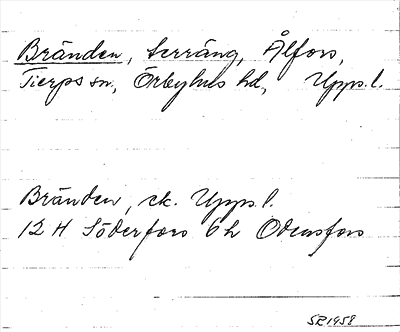 Bränden, terräng, Ålfors,
Tierps sn, Örbyhus hd, Upps.l.
Bränden, ek. Upps.l.
12 H Söderfors 6h Odensfors
SR1958